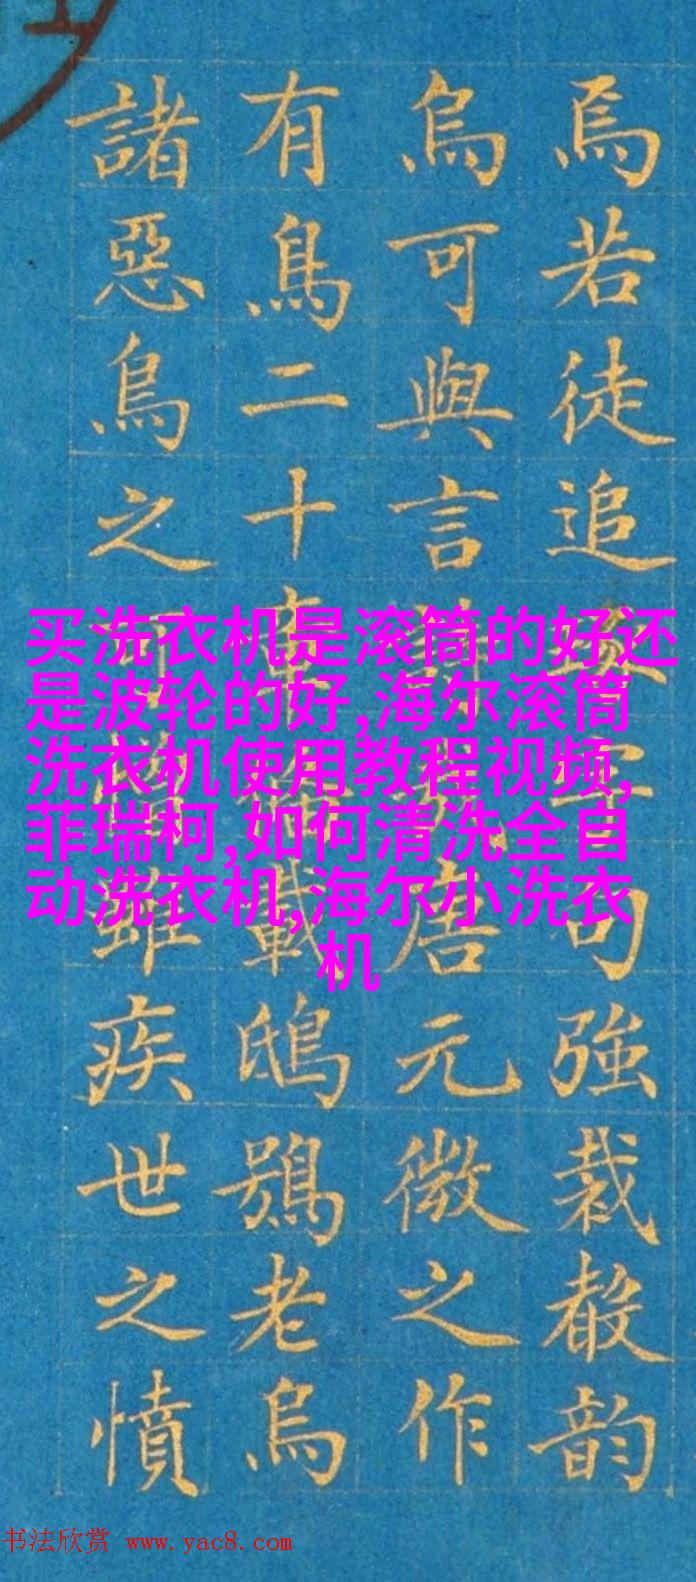 买洗衣机是滚筒的好还
是波轮的好,海尔滚筒
洗衣机使用教程视频,
菲瑞柯,如何清洗全自
动洗衣机,海尔小洗衣
机
焉若徒追句強裁韵
烏可與言唐元微之作
有鳥二十章載鴟鴞老烏
諸惡鳥之可雖疾世之憤
书法欣赏 www.yac8.com